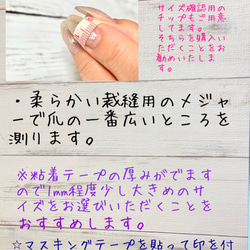 サイズ確認用の
チップもご用意
してます。
そちらを購入い
ただくことをお
勧めいたしま
す。
・柔らかい裁縫用のメジャ
ーで爪の一番広いところを
測ります。
※粘着テープの厚みがでます
ので1mm程度少し大きめのサ
イズをお選びいただくことを
おすすめします。
☆マスキングテープを貼って印を付